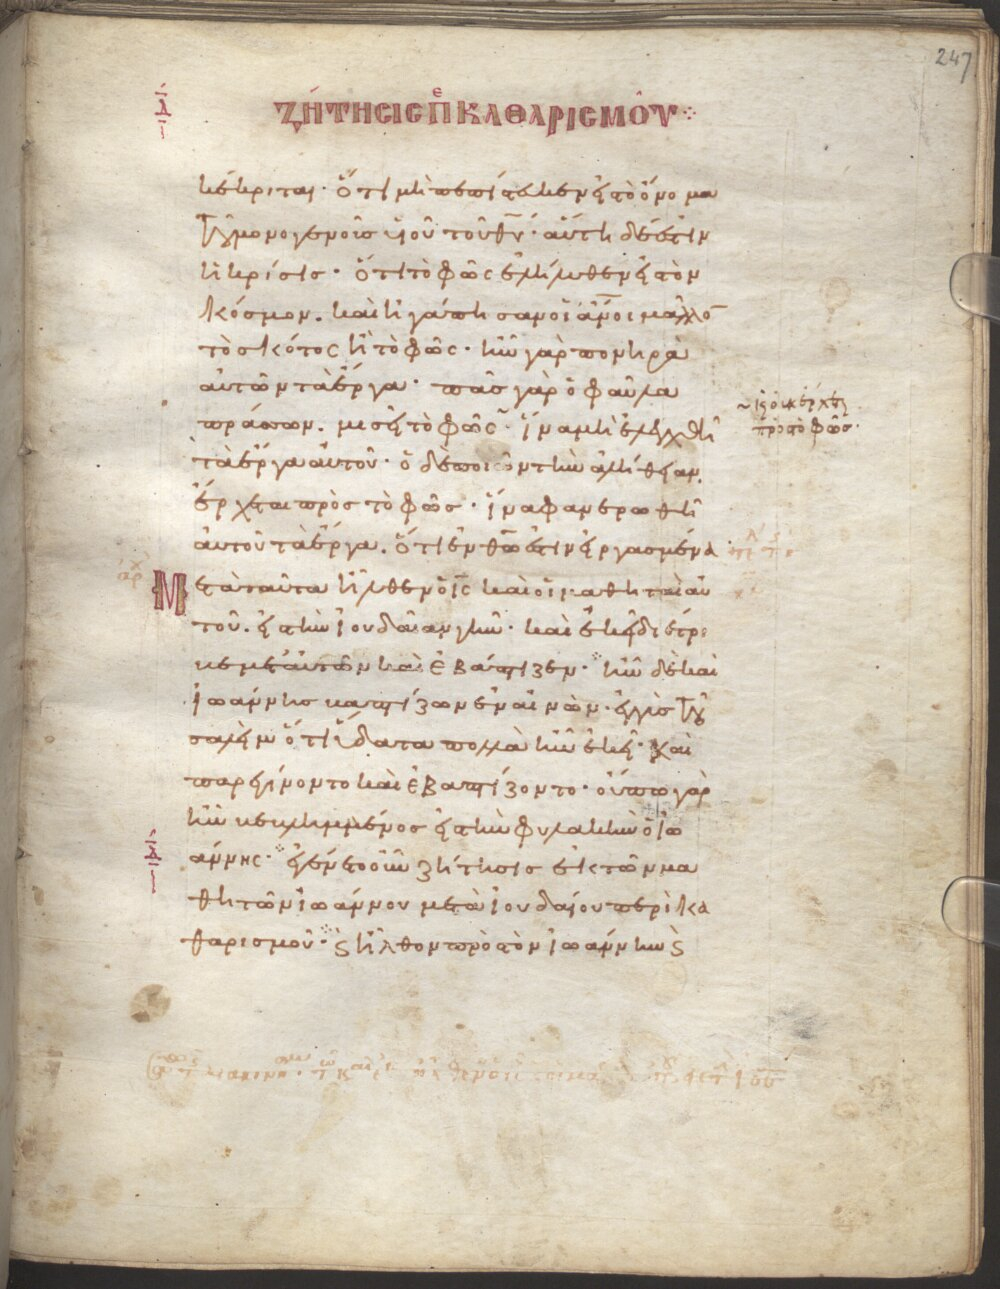 247
Δ ΖΉΤΗCΙC Π̅ε ΚΑΘΑΡΙCΜΟ͂Υ
κέκριται· ὅτι μὴ πεπίστευκεν εἰς τὸ ὄνομα
τοῦ μονογενοῦς υἱοῦ τοῦ θ̅υ̅· αὕτη δέ ἐστιν
ἡ κρίσις· ὅτι τὸ φῶς ἐλήλυθεν εἰς τὸν
κόσμον. καὶ ἠγάπησαν οἱ ἄ̅ν̅οι μᾶλλο
τὸ σκότος ἢ τὸ φῶς· ἦν γὰρ πονηρὰ
αὐτῶν τὰ ἔργα· πᾶς γὰρ ὁ φαῦλα
πράσσων. μισεῖ τὸ φῶς· ἵνα μὴ ἐλεγχθῆ
καὶ οὐκ ἔρχεται
πρὸς τὸ φῶς·
τὰ ἔργα αὐτοῦ· ὁ δὲ ποιῶν τὴν ἀλήθειαν.
ἔρχεται πρὸς τὸ φῶς· ἵνα φανερωθῆ
αὐτοῦ τὰ ἔργα. ὅτι ἐν θ̅ω̅ ἐστιν εἰργασμένα·
Μετὰ ταῦτα ἦλθεν ὁ ι̅ς̅ καὶ οἱ μαθηταὶ αὐ
τοῦ. εἰς τὴν ἰουδαίαν γῆν· καὶ ἐκεῖ διέτρι
βε μετ' αὐτῶν καὶ ἐβάπτιζεν· ἦν δὲ καὶ
ἰωάννης βαπτίζων ἐν αἰνὼν· ἐγγὺς τοῦ
σαλεὶμ ὅτι ὕδατα πολλὰ ἦν ἐκεῖ· καὶ
παρεγίνοντο καὶ ἐβαπτίζοντο· οὔπω γὰρ
ἦν βεβλημμένος εἰς τὴν φυλακὴν ὁ ἰω
άννης· ἐγένετο οὖν ζήτησις ἐκ τῶν μα
θητῶν ἰωάννου μετὰ ἰουδαίου περὶ κα
θαρισμοῦ· ϗ ἦλθον πρὸς τὸν ἰωάννην ϗ